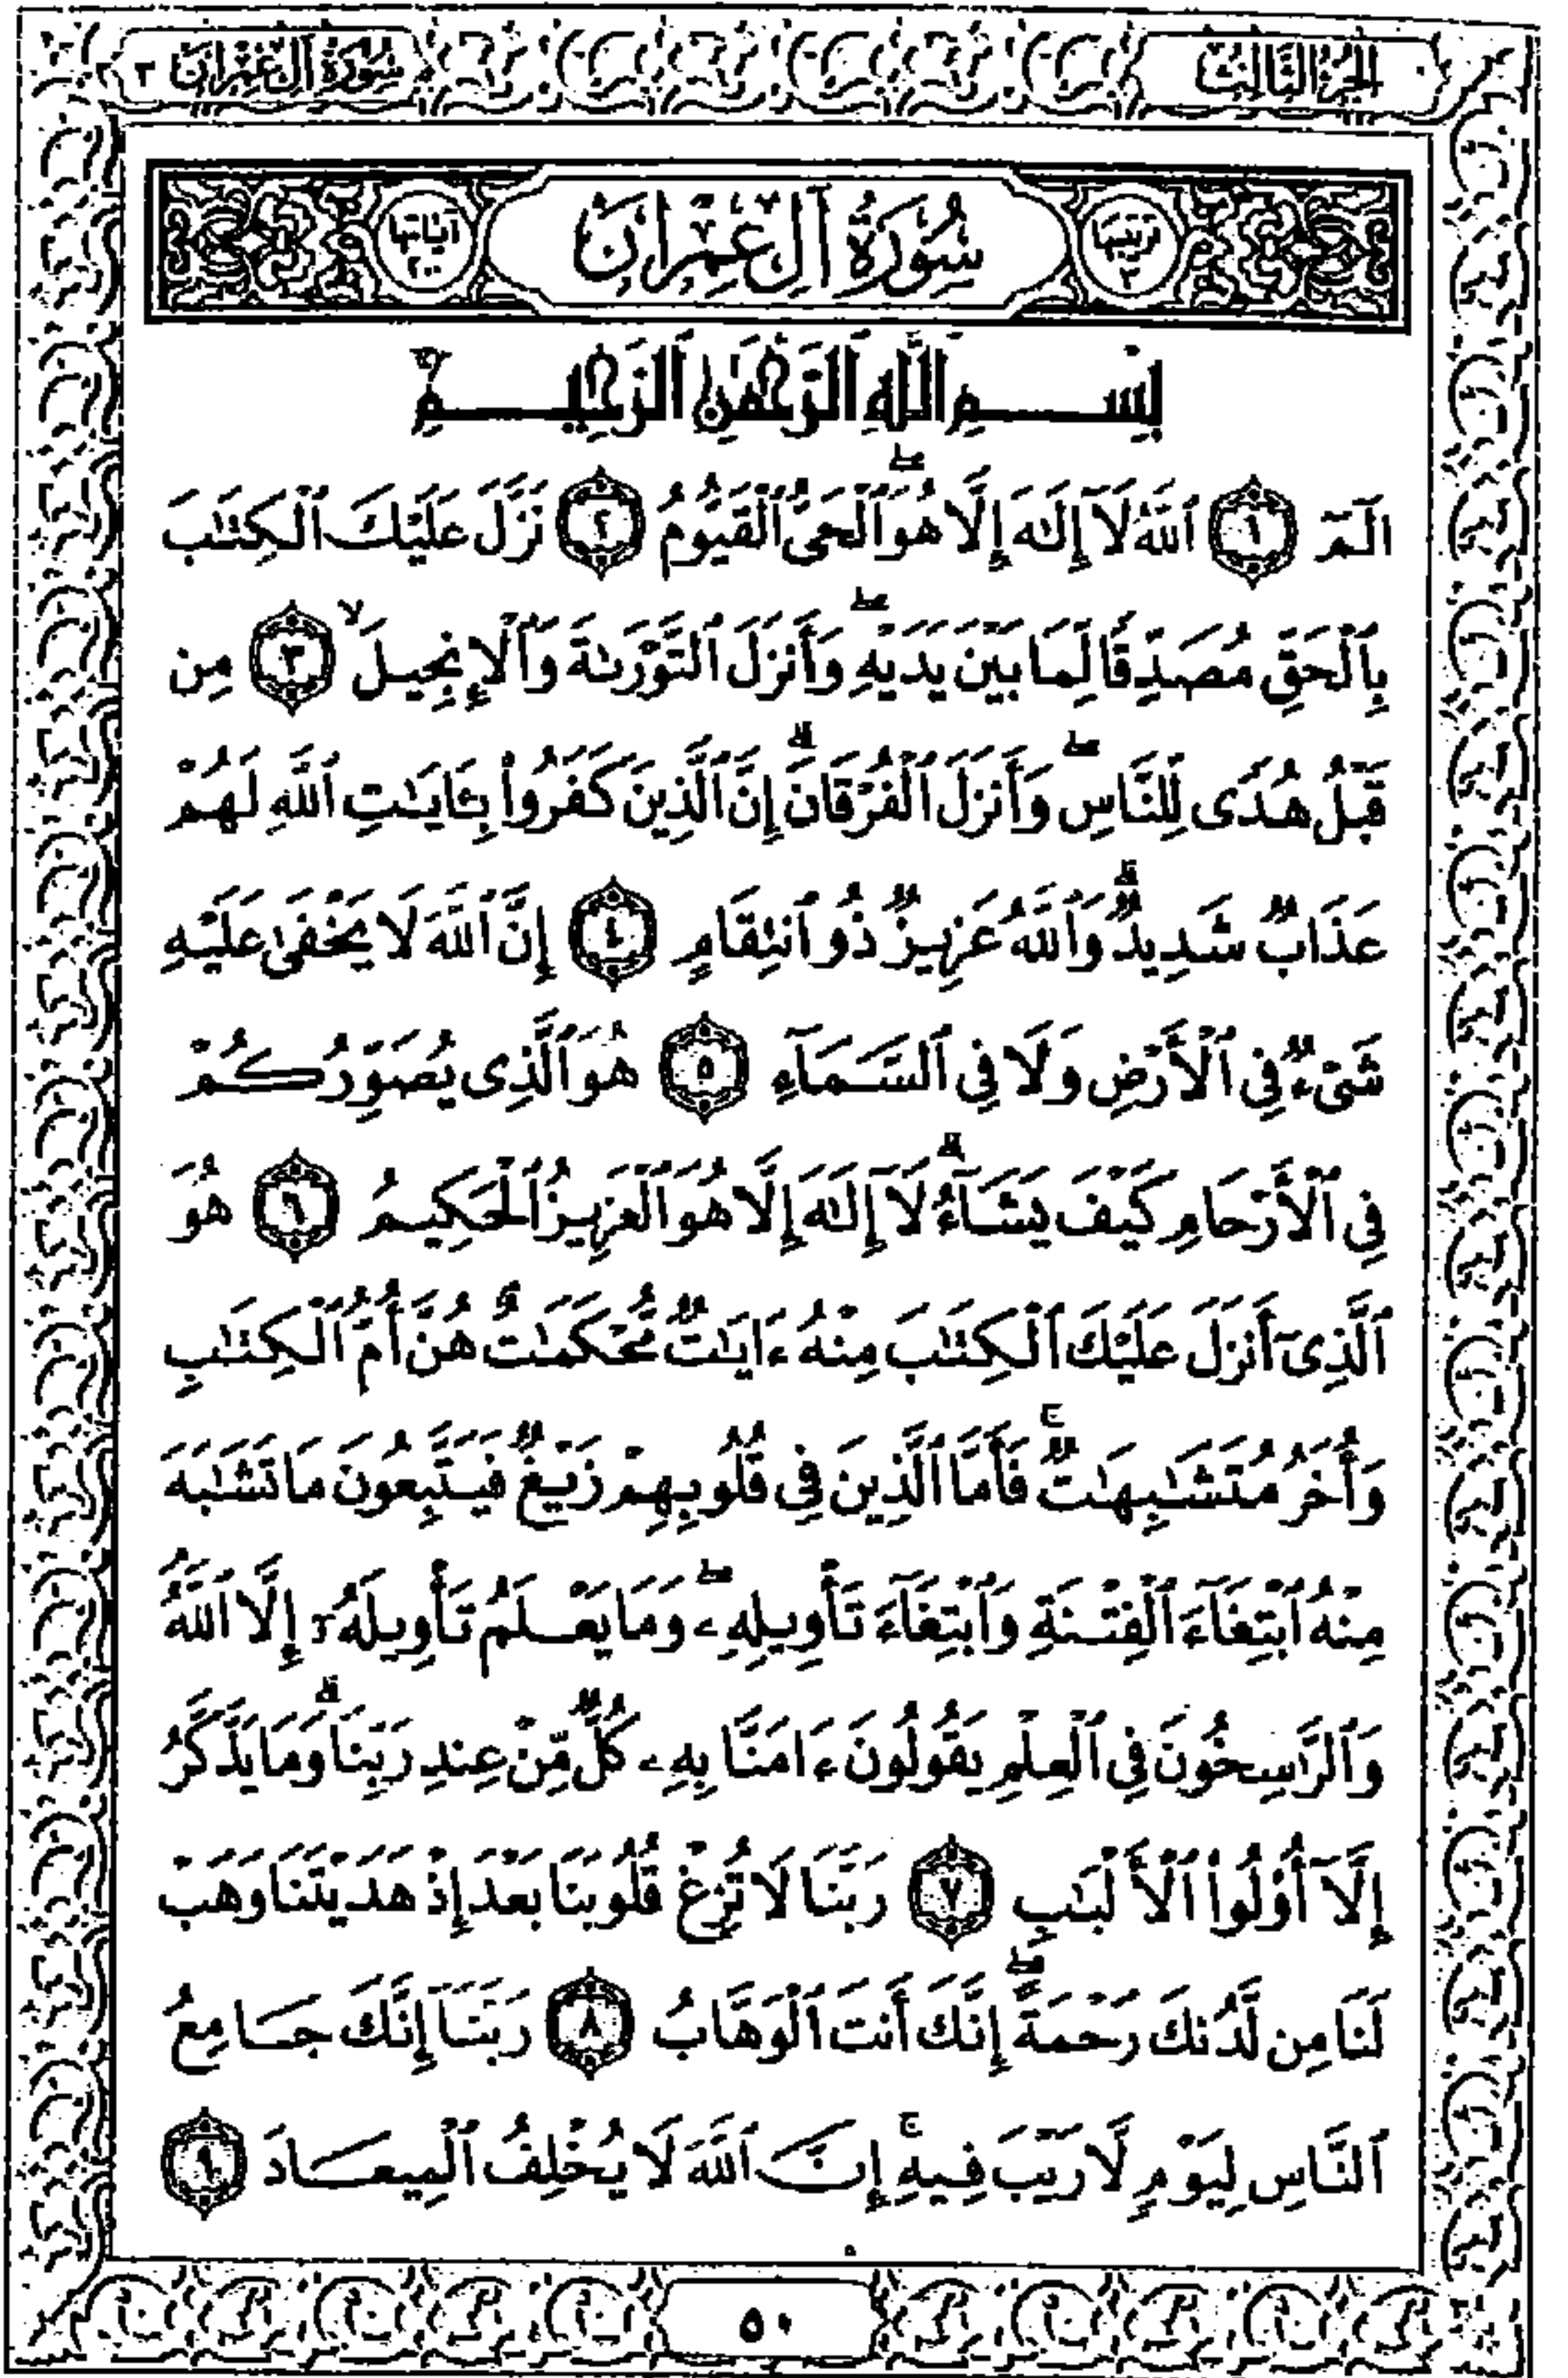 الجزء الثالث
سورة آل عمران ٣
ترتيبها ٣
سُورَةُ آلِ عِمْرَانَ
آياتها ٢٠٠
بِسْمِ ٱللَّهِ ٱلرَّحْمَٰنِ ٱلرَّحِيمِ
الٓمٓ ١ ٱللَّهُ لَآ إِلَٰهَ إِلَّا هُوَۖ ٱلْحَىُّ ٱلْقَيُّومُ ٢ نَزَّلَ عَلَيْكَ ٱلْكِتَٰبَ
بِٱلْحَقِّ مُصَدِّقًا لِّمَا بَيْنَ يَدَيْهِۖ وَأَنزَلَ ٱلتَّوْرَىٰةَ وَٱلْإِنجِيلَۙ ٣ مِن
قَبْلُ هُدًى لِّلنَّاسِۖ وَأَنزَلَ ٱلْفُرْقَانَۗ إِنَّ ٱلَّذِينَ كَفَرُوا۟ بِـَٔايَٰتِ ٱللَّهِ لَهُمْ
عَذَابٌ شَدِيدٌۗ وَٱللَّهُ عَزِيزٌ ذُو ٱنتِقَامٍ ٤ إِنَّ ٱللَّهَ لَا يَخْفَىٰ عَلَيْهِ
شَىْءٌ فِى ٱلْأَرْضِ وَلَا فِى ٱلسَّمَآءِ ٥ هُوَ ٱلَّذِى يُصَوِّرُكُمْ
فِى ٱلْأَرْحَامِ كَيْفَ يَشَآءُۗ لَآ إِلَٰهَ إِلَّا هُوَ ٱلْعَزِيزُ ٱلْحَكِيمُ ٦ هُوَ
ٱلَّذِىٓ أَنزَلَ عَلَيْكَ ٱلْكِتَٰبَ مِنْهُ ءَايَٰتٌ مُّحْكَمَٰتٌ هُنَّ أُمُّ ٱلْكِتَٰبِ
وَأُخَرُ مُتَشَٰبِهَٰتٌۚ فَأَمَّا ٱلَّذِينَ فِى قُلُوبِهِمْ زَيْغٌ فَيَتَّبِعُونَ مَا تَشَٰبَهَ
مِنْهُ ٱبْتِغَآءَ ٱلْفِتْنَةِ وَٱبْتِغَآءَ تَأْوِيلِهِۦۖ وَمَا يَعْلَمُ تَأْوِيلَهُۥٓ إِلَّا ٱللَّهُ
وَٱلرَّٰسِخُونَ فِى ٱلْعِلْمِ يَقُولُونَ ءَامَنَّا بِهِۦ كُلٌّ مِّنْ عِندِ رَبِّنَاۗ وَمَا يَذَّكَّرُ
إِلَّآ أُو۟لُوا۟ ٱلْأَلْبَٰبِ ٧ رَبَّنَا لَا تُزِغْ قُلُوبَنَا بَعْدَ إِذْ هَدَيْتَنَا وَهَبْ
لَنَا مِن لَّدُنكَ رَحْمَةًۖ إِنَّكَ أَنتَ ٱلْوَهَّابُ ٨ رَبَّنَآ إِنَّكَ جَامِعُ
ٱلنَّاسِ لِيَوْمٍ لَّا رَيْبَ فِيهِۚ إِنَّ ٱللَّهَ لَا يُخْلِفُ ٱلْمِيعَادَ ٩
٥٠